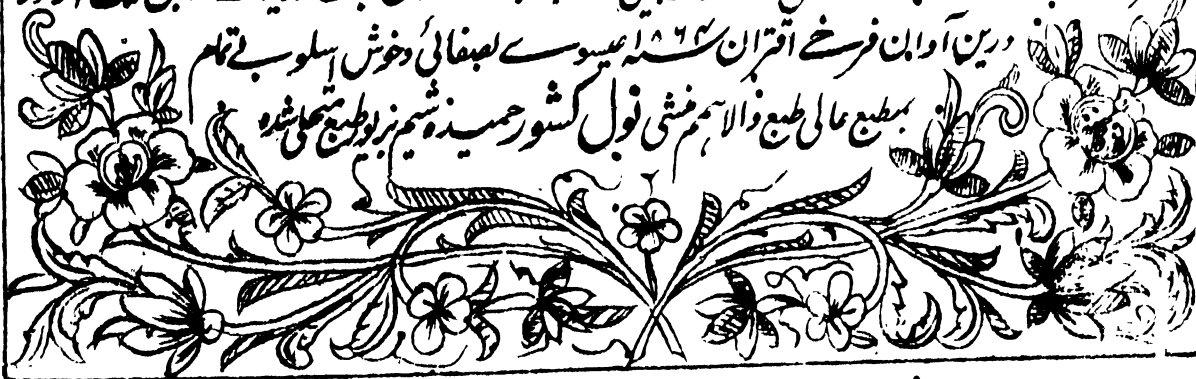 درین آوان فرخے اقتران سنہ ۱۸۶۴ عیسوے بصفائی وخوش اسلوبے تمام
بمطبع عالی طبع والا ہمم منشی نول کشور حمیدہ شیم بزیور طبع متحلی شدہ